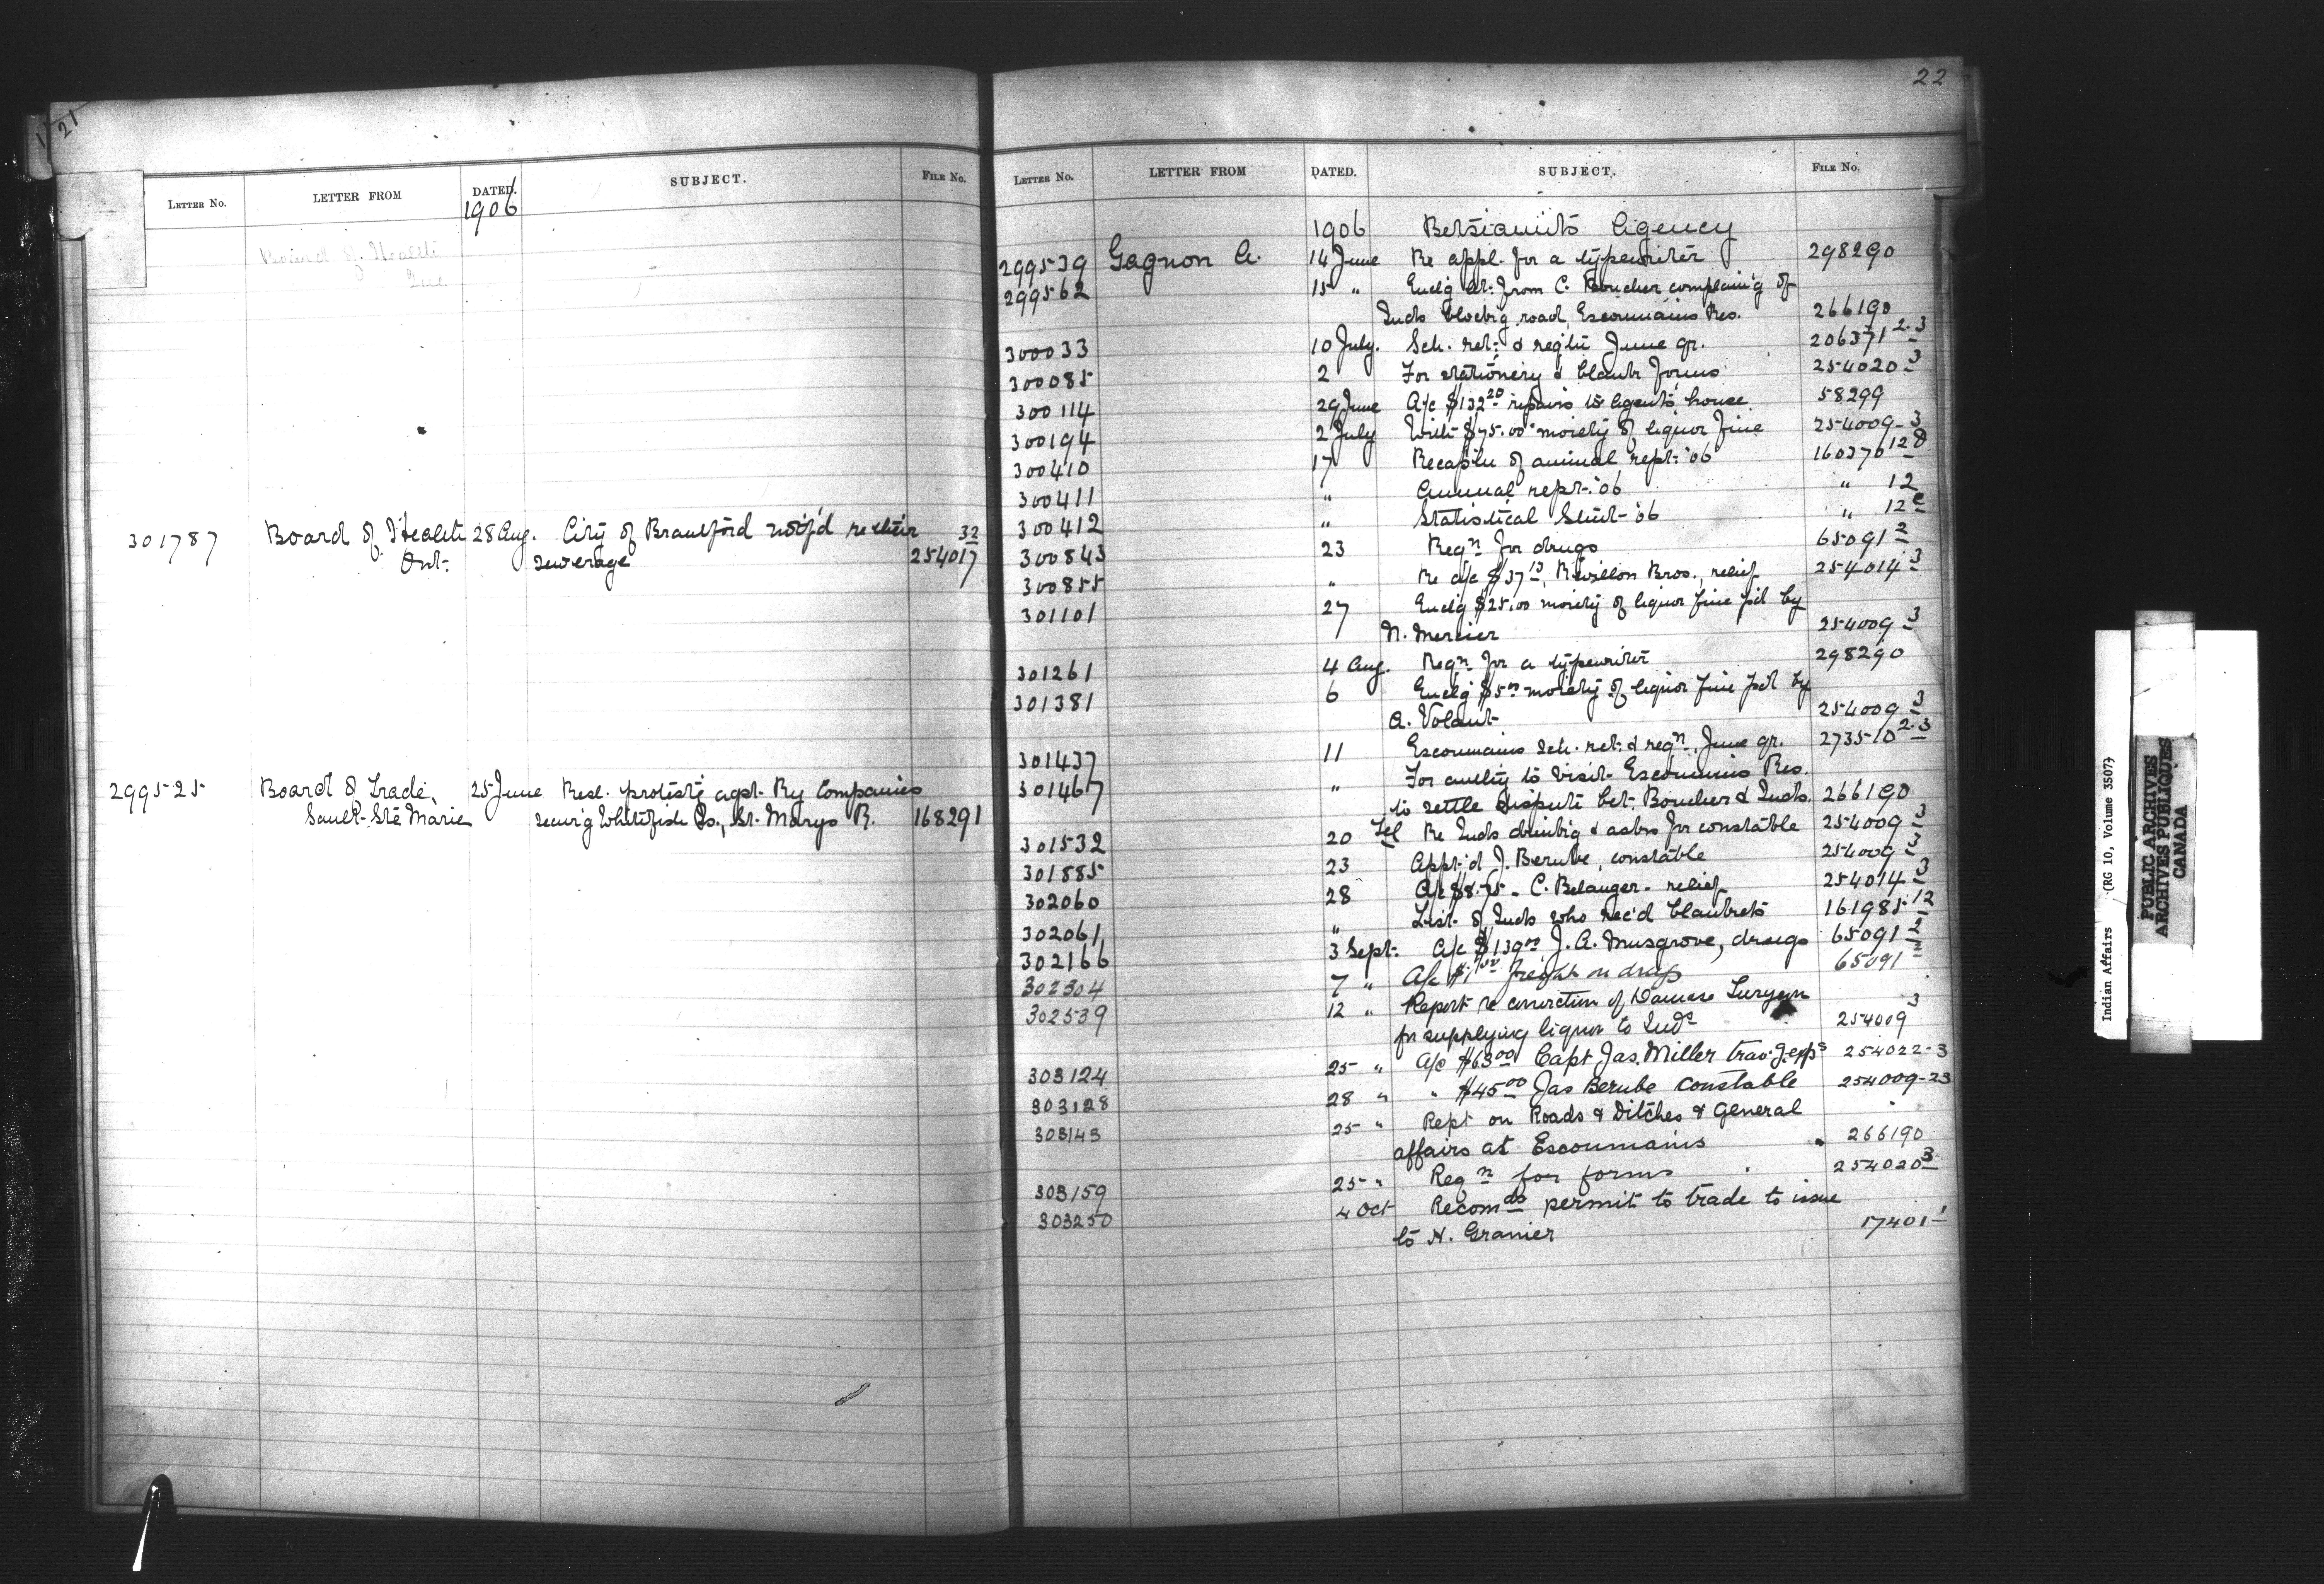 21
LETTER No. LETTER FROM DATED. SUBJECT. FILE No.
1906
Board of Health
301787 Board of Health 28 Aug. City of Brantford notif'd re their 32
Ont: sewerage 254017
299525 Board of Trade, 25 June Resl. protest'g agst. Ry Companies
Sault Ste Marie secur'g Whitefish Is., St. Marys R. 168291
22
LETTER No. LETTER FROM DATED. SUBJECT. FILE No.
1906 Betsiamits Agency
299539 Gagnon A. 14 June Re appl. for a typewriter 298290
299562 15 " Encl'g let: from C. Boucher complain'g of
Inds block'g road, Escoumains Res. 266190
300033 10 July. Sch. ret: & reg'tr June qr. 206371 2-3
300085 2 For stationery & blank forms 254020 3
300114 29 June A/c $132.20 repairs to Agents house 58299
300194 2 July With $75.00 moiety of liquor fine 254009-3
300410 17 Recaptn of annual rept: '06 160376 12 D
300411 " Annual rept: '06 " 12
300412 " Statistical Stmt '06 " 12 C
300843 23 Reqn for drugs 65091 2
300855 " Re a/c $37.13, Revillon Bros., relief 254014 3
301101 27 Encl'g $25.00 moiety of liquor fine p'd by
N. Mercier 254009 3
301261 4 Aug. Reqn for a typewriter 298290
301381 6 Encl'g $5.00 moiety of liquor fine pd by
A. Volant 254009 3
301437 11 Escoumains Sch. ret: & reqn June qr. 273510 2-3
301467 " For authy to visit Escoumins Res.
to settle dispute bet. Boucher & Inds. 266190
301532 20 Tel Re Inds drink'g & asks for constable 254009 3
301885 23 Appt'd J. Berube, constable 254009 3
302060 28 A/c $8.75 - C. Belanger - relief 254014 3
302061 " List of Inds who rec'd blankets 161985 12
302166 3 Sept: A/c $139.00 J. A. Musgrove, drugs 65091 2
302304 7 " A/c freight on drugs 65091 2
302539 12 " Report re conviction of Damase
for supplying liquor to Inds 254009 3
303124 25 " A/c $63.00 Capt Jas. Miller trav.g exps 254022-3
303128 28 " " $45.00 Jas Berube constable 254009-23
303143 25 " Rept on Roads & Ditches & General
affairs at Escoumains 266190
303159 25 " Reqn for forms 254020 3
303250 4 Oct Recomds permit to trade to issue
to N. Granier 17401-1
Indian Affairs (RG 10, Volume 3507)
PUBLIC ARCHIVES
ARCHIVES PUBLIQUES
CANADA